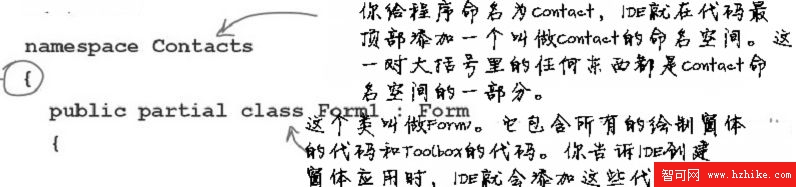 你给程序命名为Contact，IDE就在代码最
顶部添加一个叫做Contact的命名空间。这
一对大括号里的任何东西都是Contact命
名空间的一部分。
namespace Contacts
{
public partial class Form1 : Form
{
这个类叫做Form1。它包含所有的绘制窗体
的代码和Toolbox的代码。你告诉IDE创建
窗体应用时，IDE就会添加这些代
智可网 www.hzhike.com